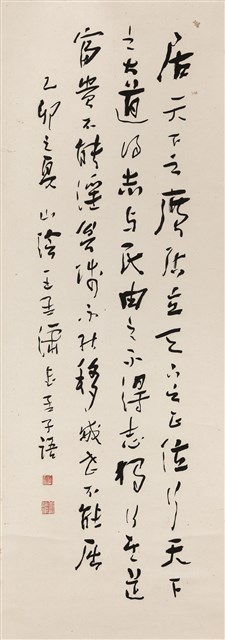 居天下之廣居立天下之正位行天下
之大道得志与民由之不得志獨行其道
富贵不能淫貧賤不能移威武不能屈
乙卯之夏山陰王蘧常書孟子語